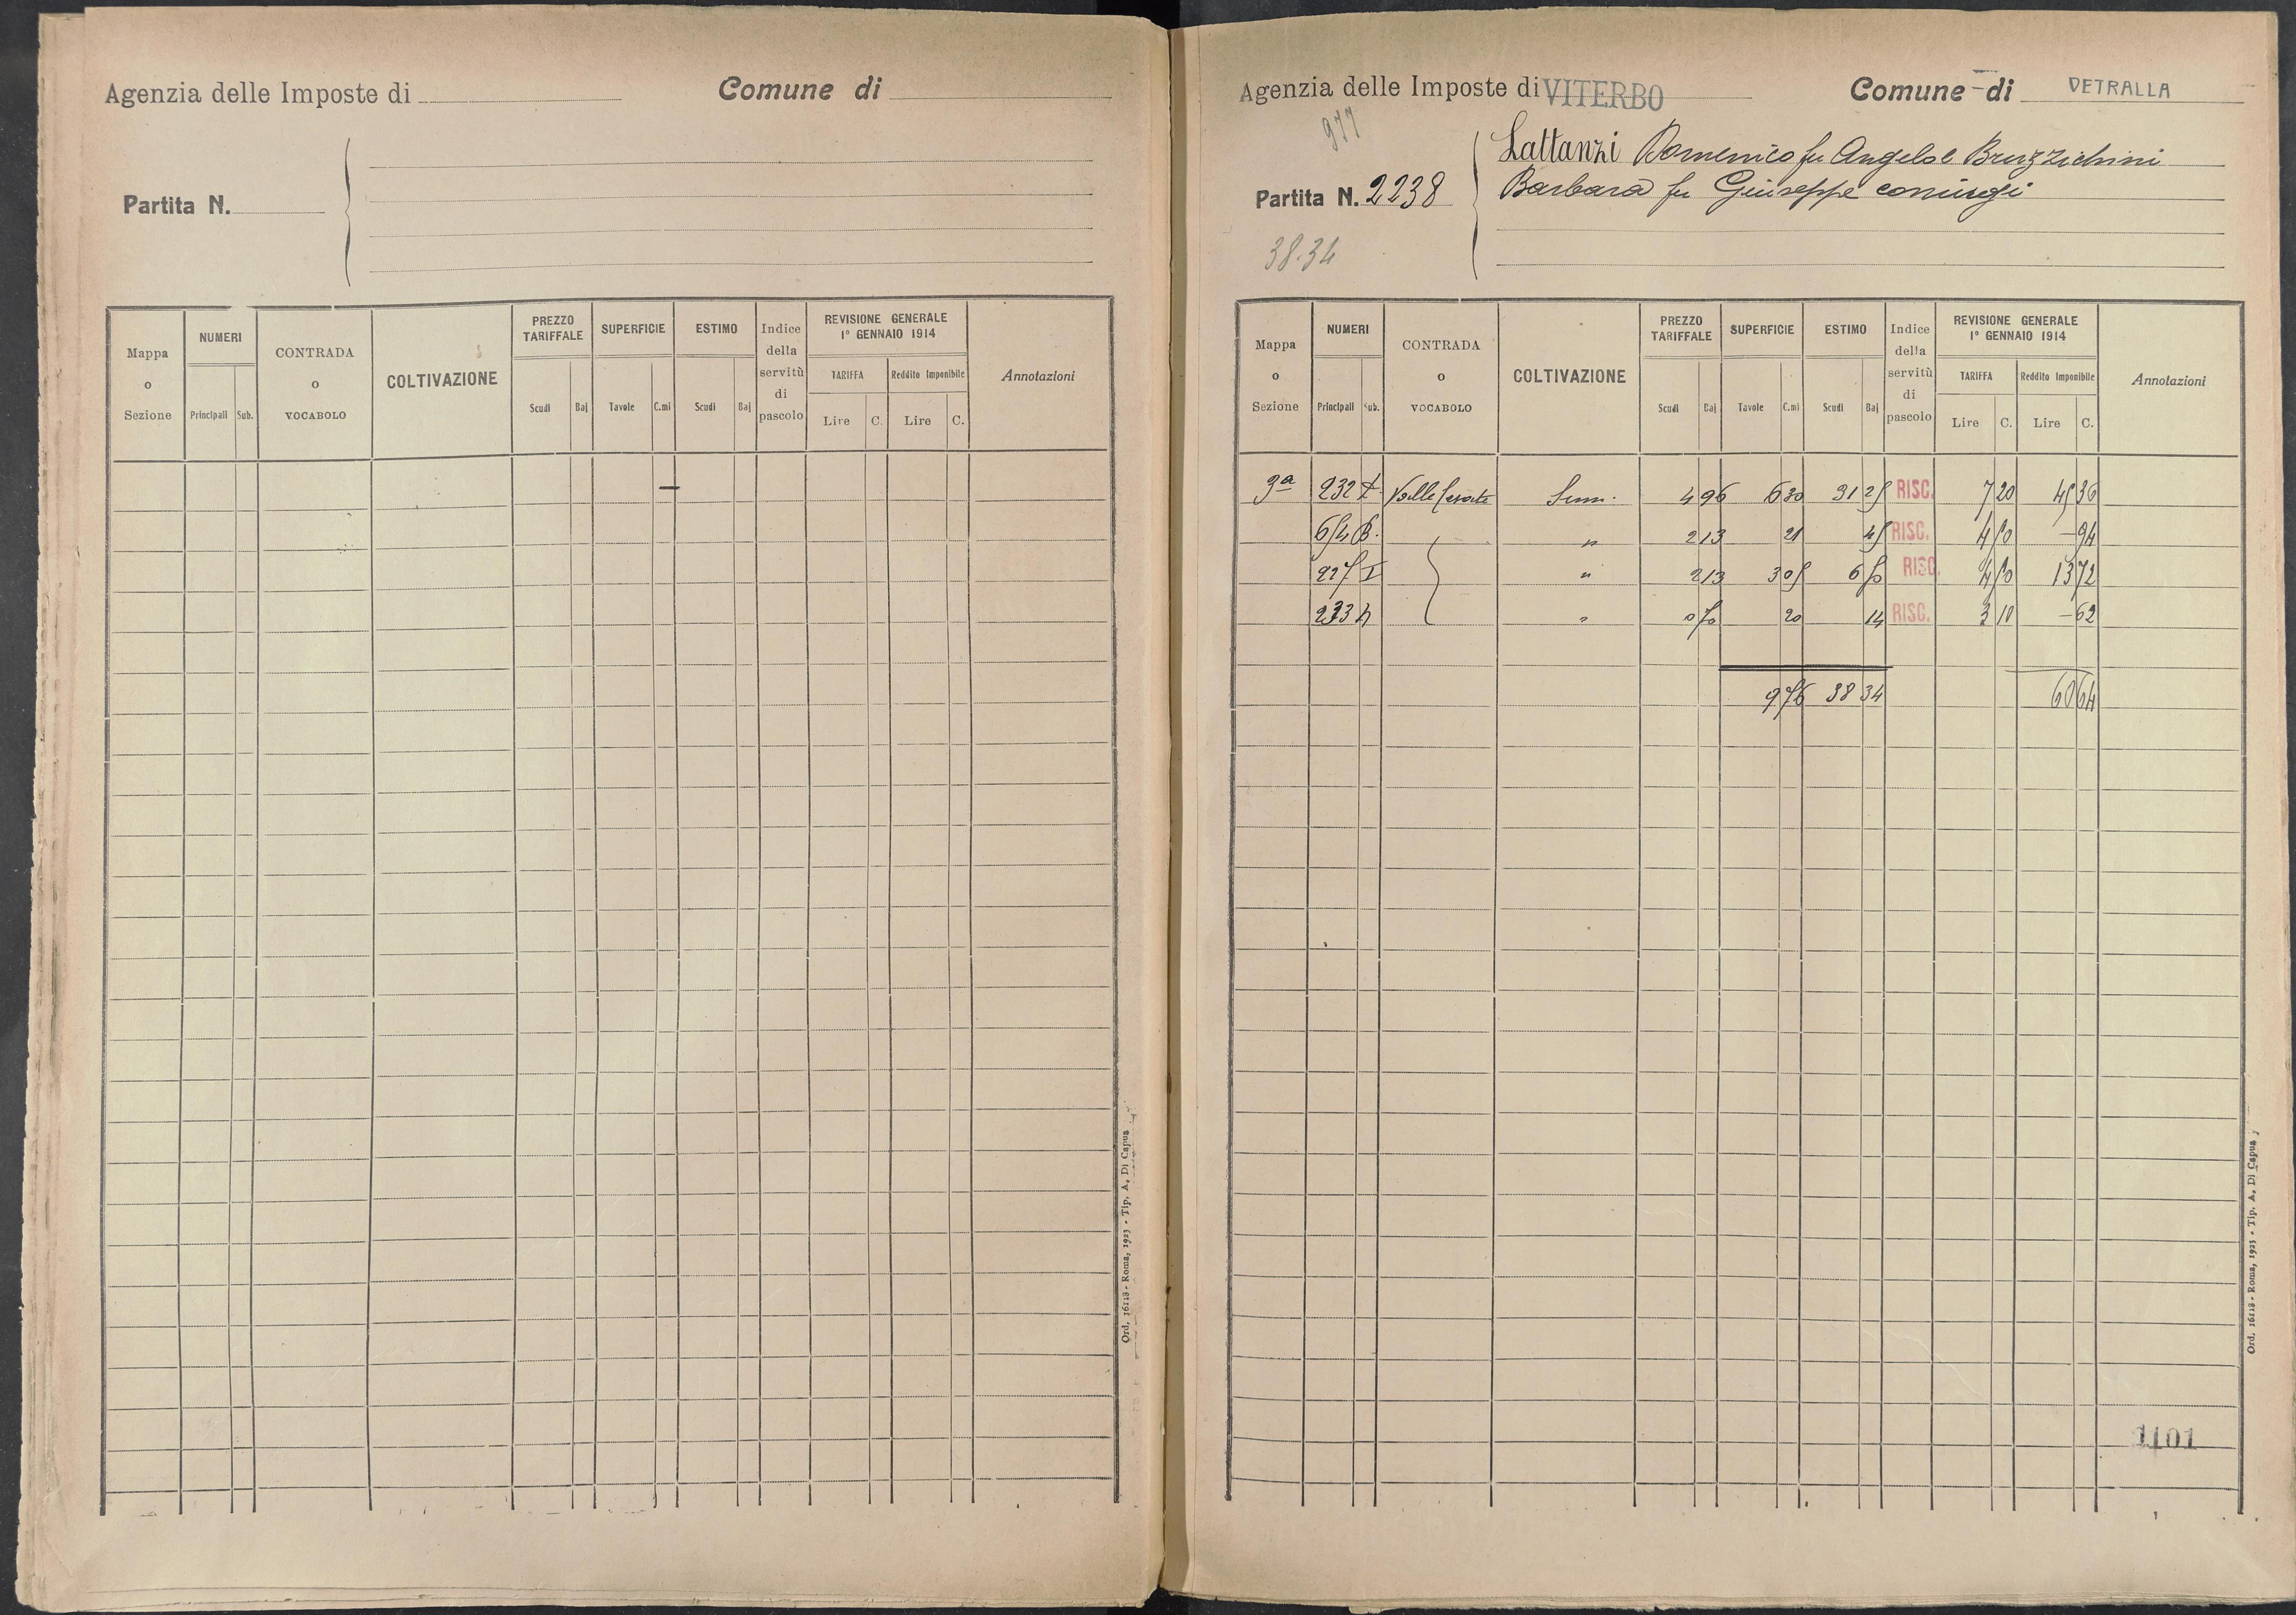 Agenzia delle Imposte di
Comune di
Partita N.
Mappa o Sezione
NUMERI
Principali Sub.
CONTRADA o VOCABOLO
COLTIVAZIONE
PREZZO TARIFFALE
Scudi Baj
SUPERFICIE
Tavole C.mi
ESTIMO
Scudi Baj
Indice della servitù di pascolo
REVISIONE GENERALE
1º GENNAIO 1914
TARIFFA
Lire C.
Reddito Imponibile
Lire C.
Annotazioni
Ord. 16118 - Roma, 1923 - Tip. A. Di Capua
Agenzia delle Imposte di VITERBO
Comune di VETRALLA
977
Lattanzi Domenico fu Angelo e Bruzzichini
Partita N. 2238
Barbara fu Giuseppe coniugi
38.34
Mappa o Sezione
NUMERI
Principali Sub.
CONTRADA o VOCABOLO
COLTIVAZIONE
PREZZO TARIFFALE
Scudi Baj
SUPERFICIE
Tavole C.mi
ESTIMO
Scudi Baj
Indice della servitù di pascolo
REVISIONE GENERALE
1º GENNAIO 1914
TARIFFA
Lire C.
Reddito Imponibile
Lire C.
Annotazioni
3ª 232 Valle Sem. 4 96 6 30 31 25 RISC. 7 20 45 36
" 2 13 21 45 RISC. 4 50 -94
227 I " 2 13 3 05 6 50 RISC. 4 50 13 72
233 " 0 70 20 14 RISC. 3 10 -62
9 76 38 34 60 64
1101
Ord. 16118 - Roma, 1923 - Tip. A. Di Capua